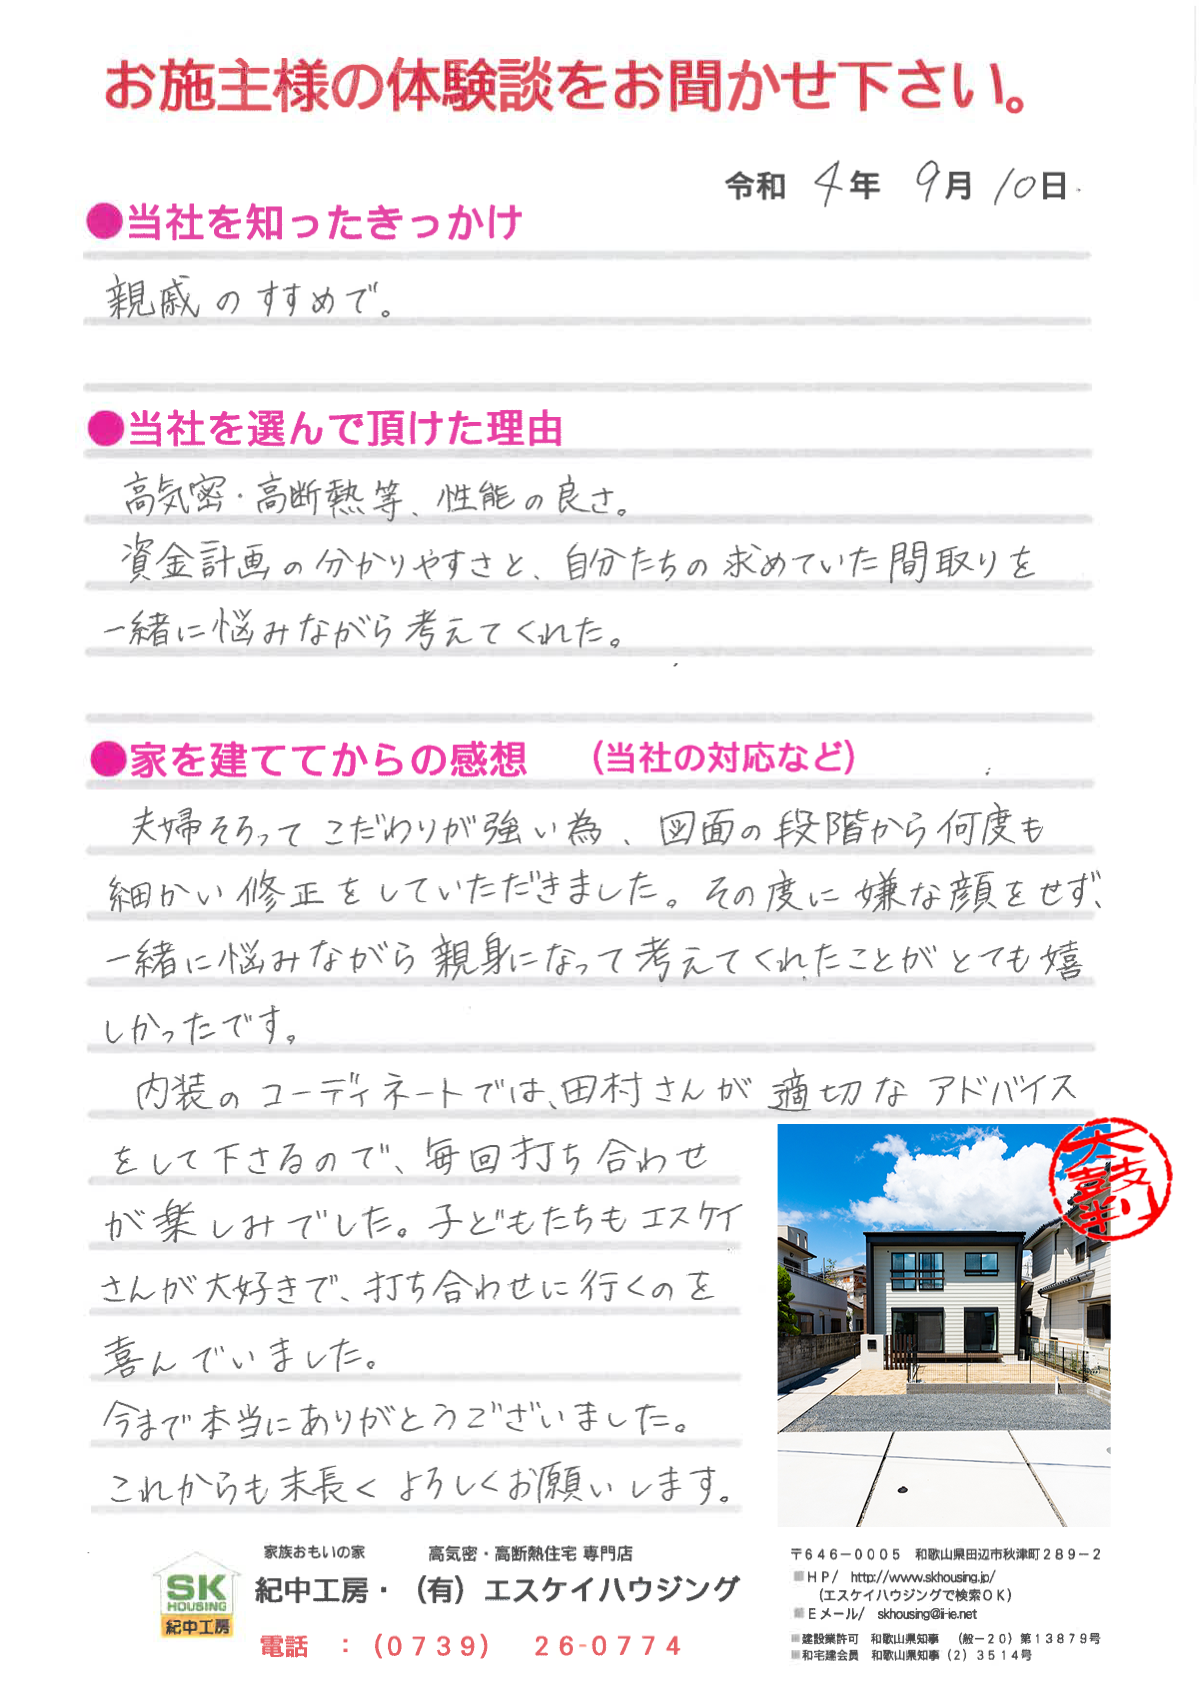 お施主様の体験談をお聞かせ下さい。
令和 4年 9月 10日
●当社を知ったきっかけ
親戚のすすめで。
●当社を選んで頂けた理由
高気密・高断熱等、性能の良さ。
資金計画の分かりやすさと、自分たちの求めていた間取りを
一緒に悩みながら考えてくれた。
●家を建ててからの感想 (当社の対応など)
夫婦そろってこだわりが強い為、図面の段階から何度も
細かい修正をしていただきました。その度に嫌な顔をせず、
一緒に悩みながら親身になって考えてくれたことがとても嬉
しかったです。
内装のコーディネートでは、田村さんが適切なアドバイス
をして下さるので、毎回打ち合わせ
が楽しみでした。子どもたちもエスケイ
さんが大好きで、打ち合わせに行くのを
喜んでいました。
今まで本当にありがとうございました。
これからも末長くよろしくお願いします。
太鼓判
SK
HOUSING
紀中工房
家族おもいの家 高気密・高断熱住宅 専門店
紀中工房・(有)エスケイハウジング
電話 :(0739) 26-0774
〒646-0005 和歌山県田辺市秋津町289-2
■HP/ http://www.skhousing.jp/
(エスケイハウジングで検索OK)
■Eメール/ skhousing@ii-ie.net
■建設業許可 和歌山県知事 (般-20)第13879号
■和宅建会員 和歌山県知事(2)3514号